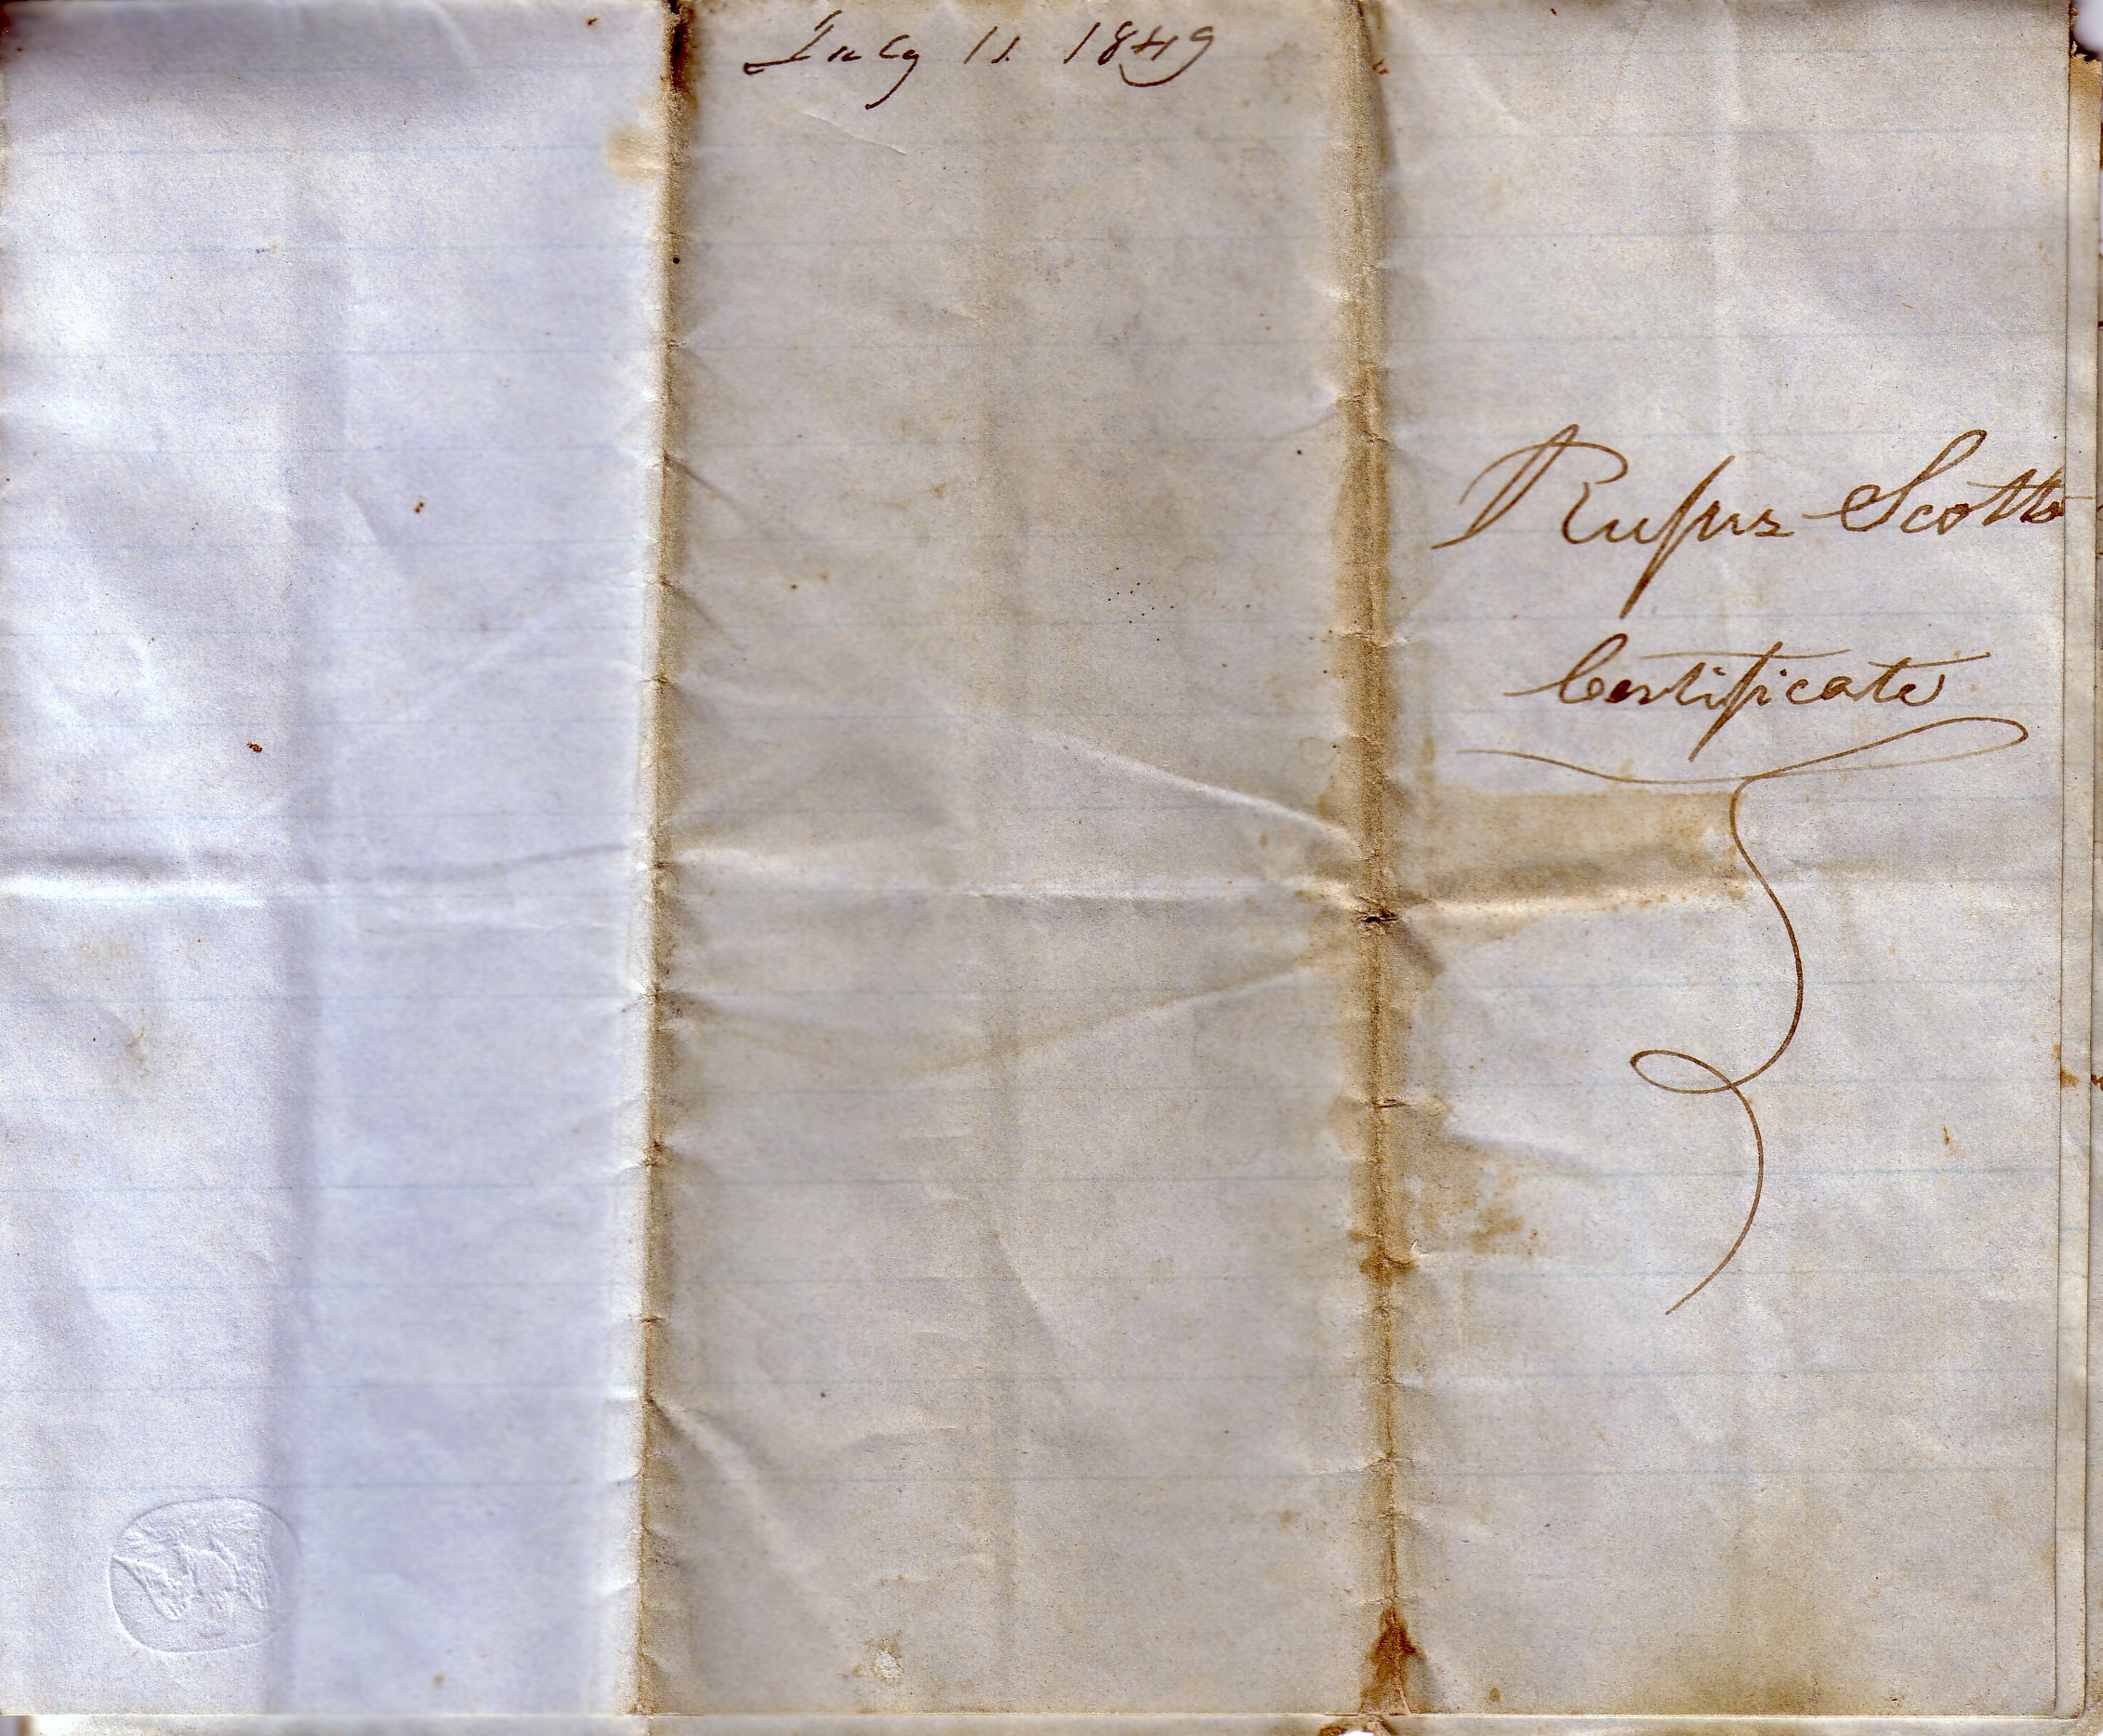 July 11. 1849
Rufus Scotts
Certificate